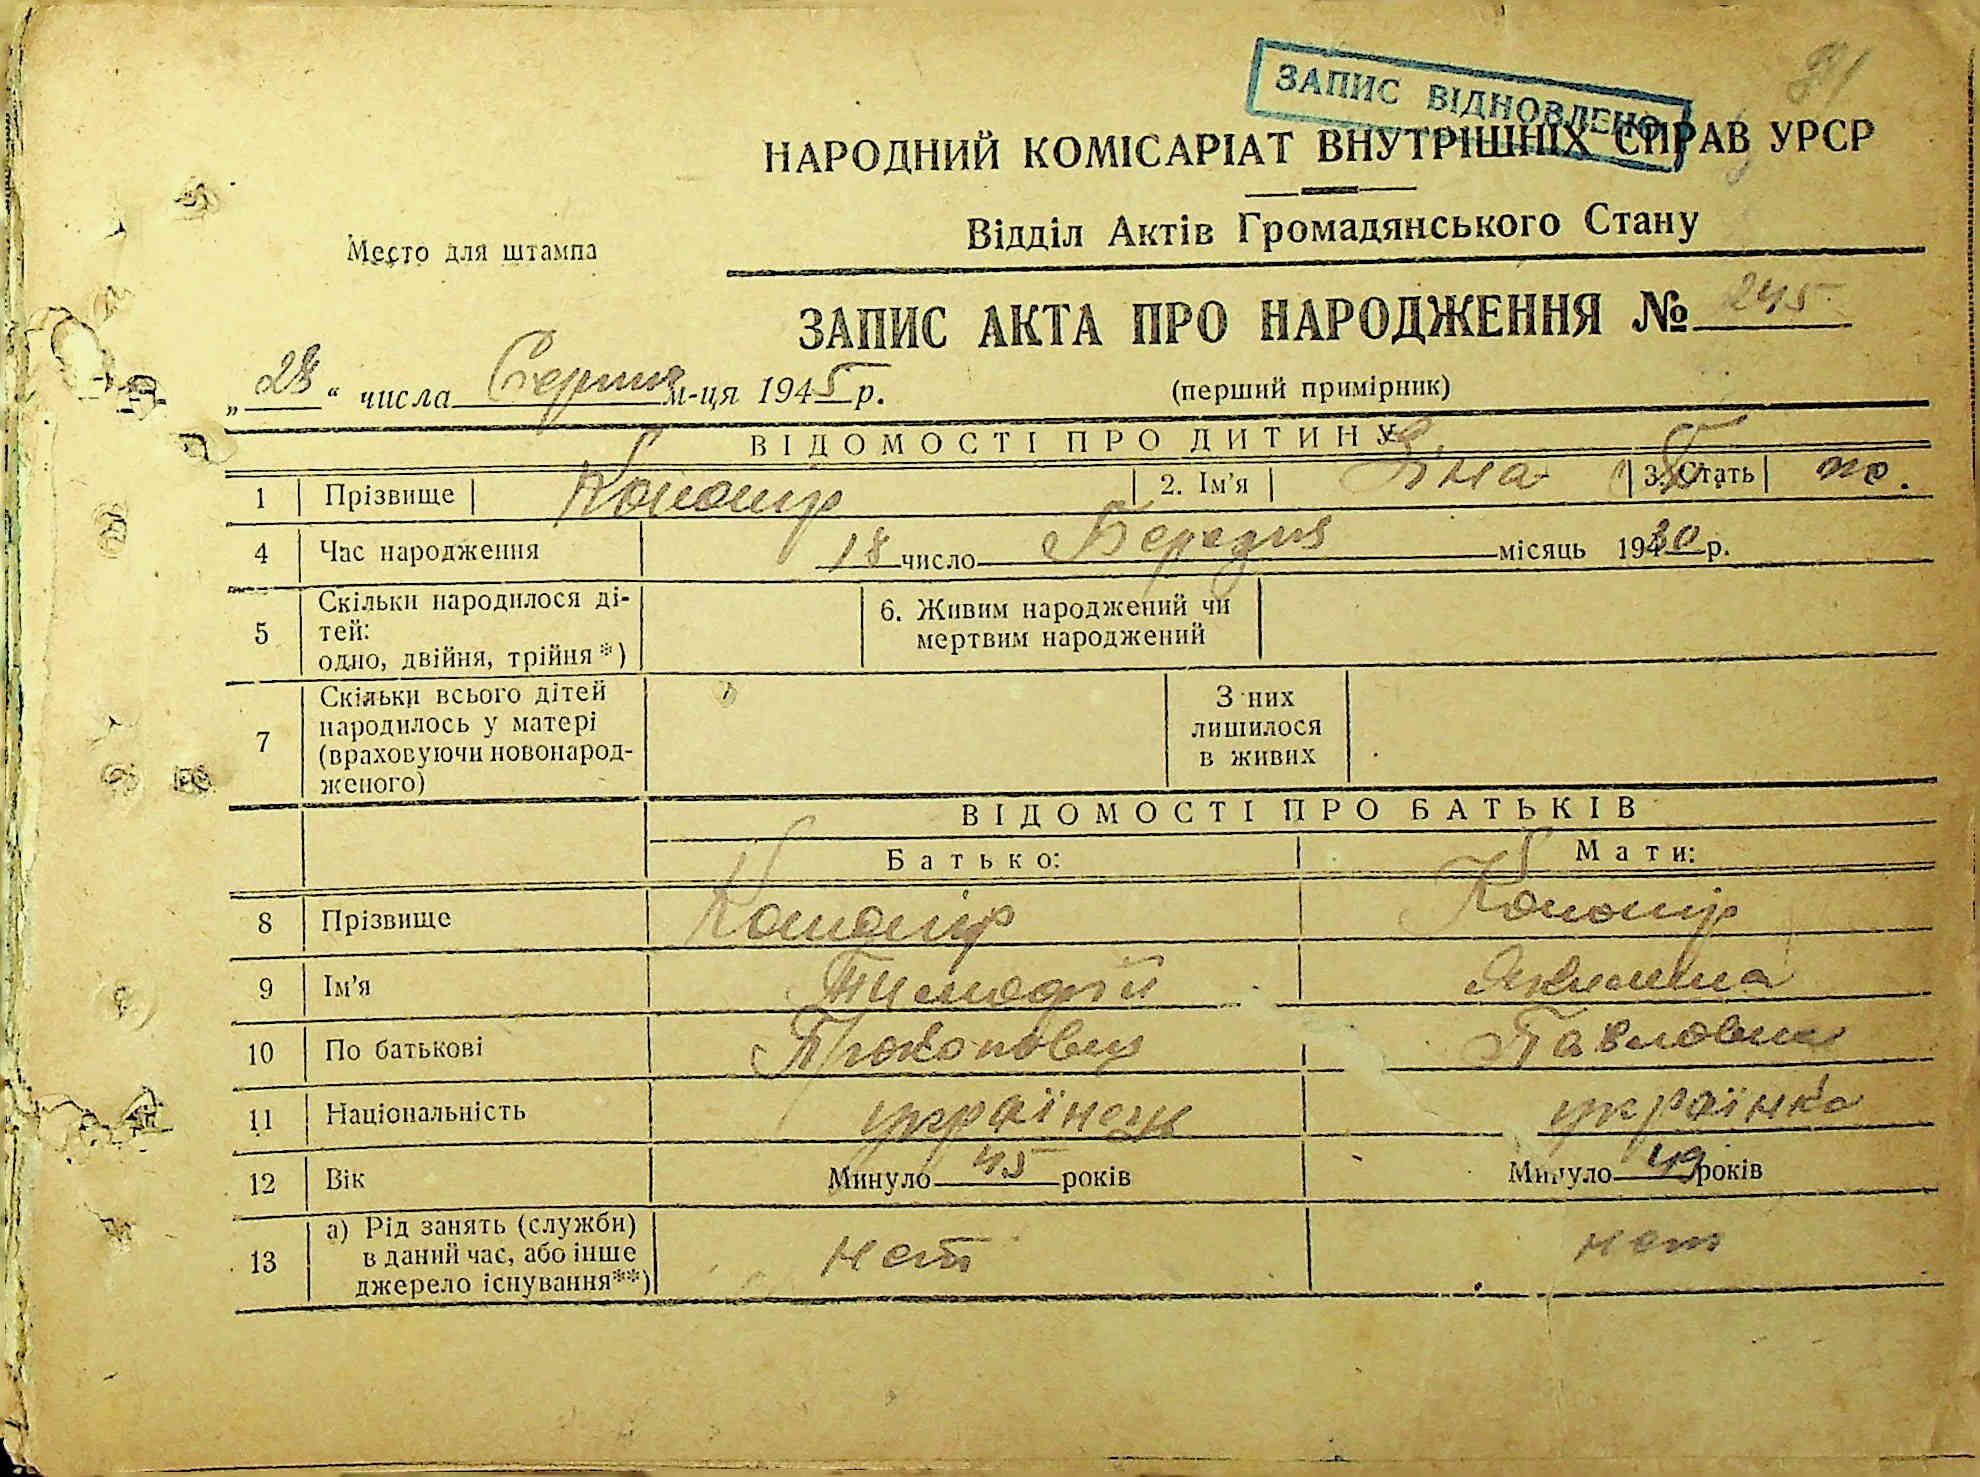 91
ЗАПИС ВІДНОВЛЕНО
НАРОДНИЙ КОМІСАРІАТ ВНУТРІШНІХ СПРАВ УРСР
Відділ Актів Громадянського Стану
Место для штампа
ЗАПИС АКТА ПРО НАРОДЖЕННЯ № 245
„28“ числа Серпня м-ця 1945 р.
(перший примірник)
ВІДОМОСТІ ПРО ДИТИНУ
1 Прізвище Кономір 2. Ім'я Зіна Т. 3. Стать ж.
4 Час народження 18 число Березня місяць 1930 р.
5 Скільки народилося ді-
тей:
одно, двійня, трійня*)
6. Живим народжений чи
мертвим народжений
7 Скільки всього дітей
народилось у матері
(враховуючи новонарод-
женого)
З них
лишилося
в живих
ВІДОМОСТІ ПРО БАТЬКІВ
Батько: Мати:
8 Прізвище Кономір Кономір
9 Ім'я Тимофій Якилина
10 По батькові Прокопович Павловна
11 Національність українець українка
12 Вік Минуло 45 років Минуло 49 років
13 а) Рід занять (служби)
в даний час, або інше
джерело існування**)
нет нет